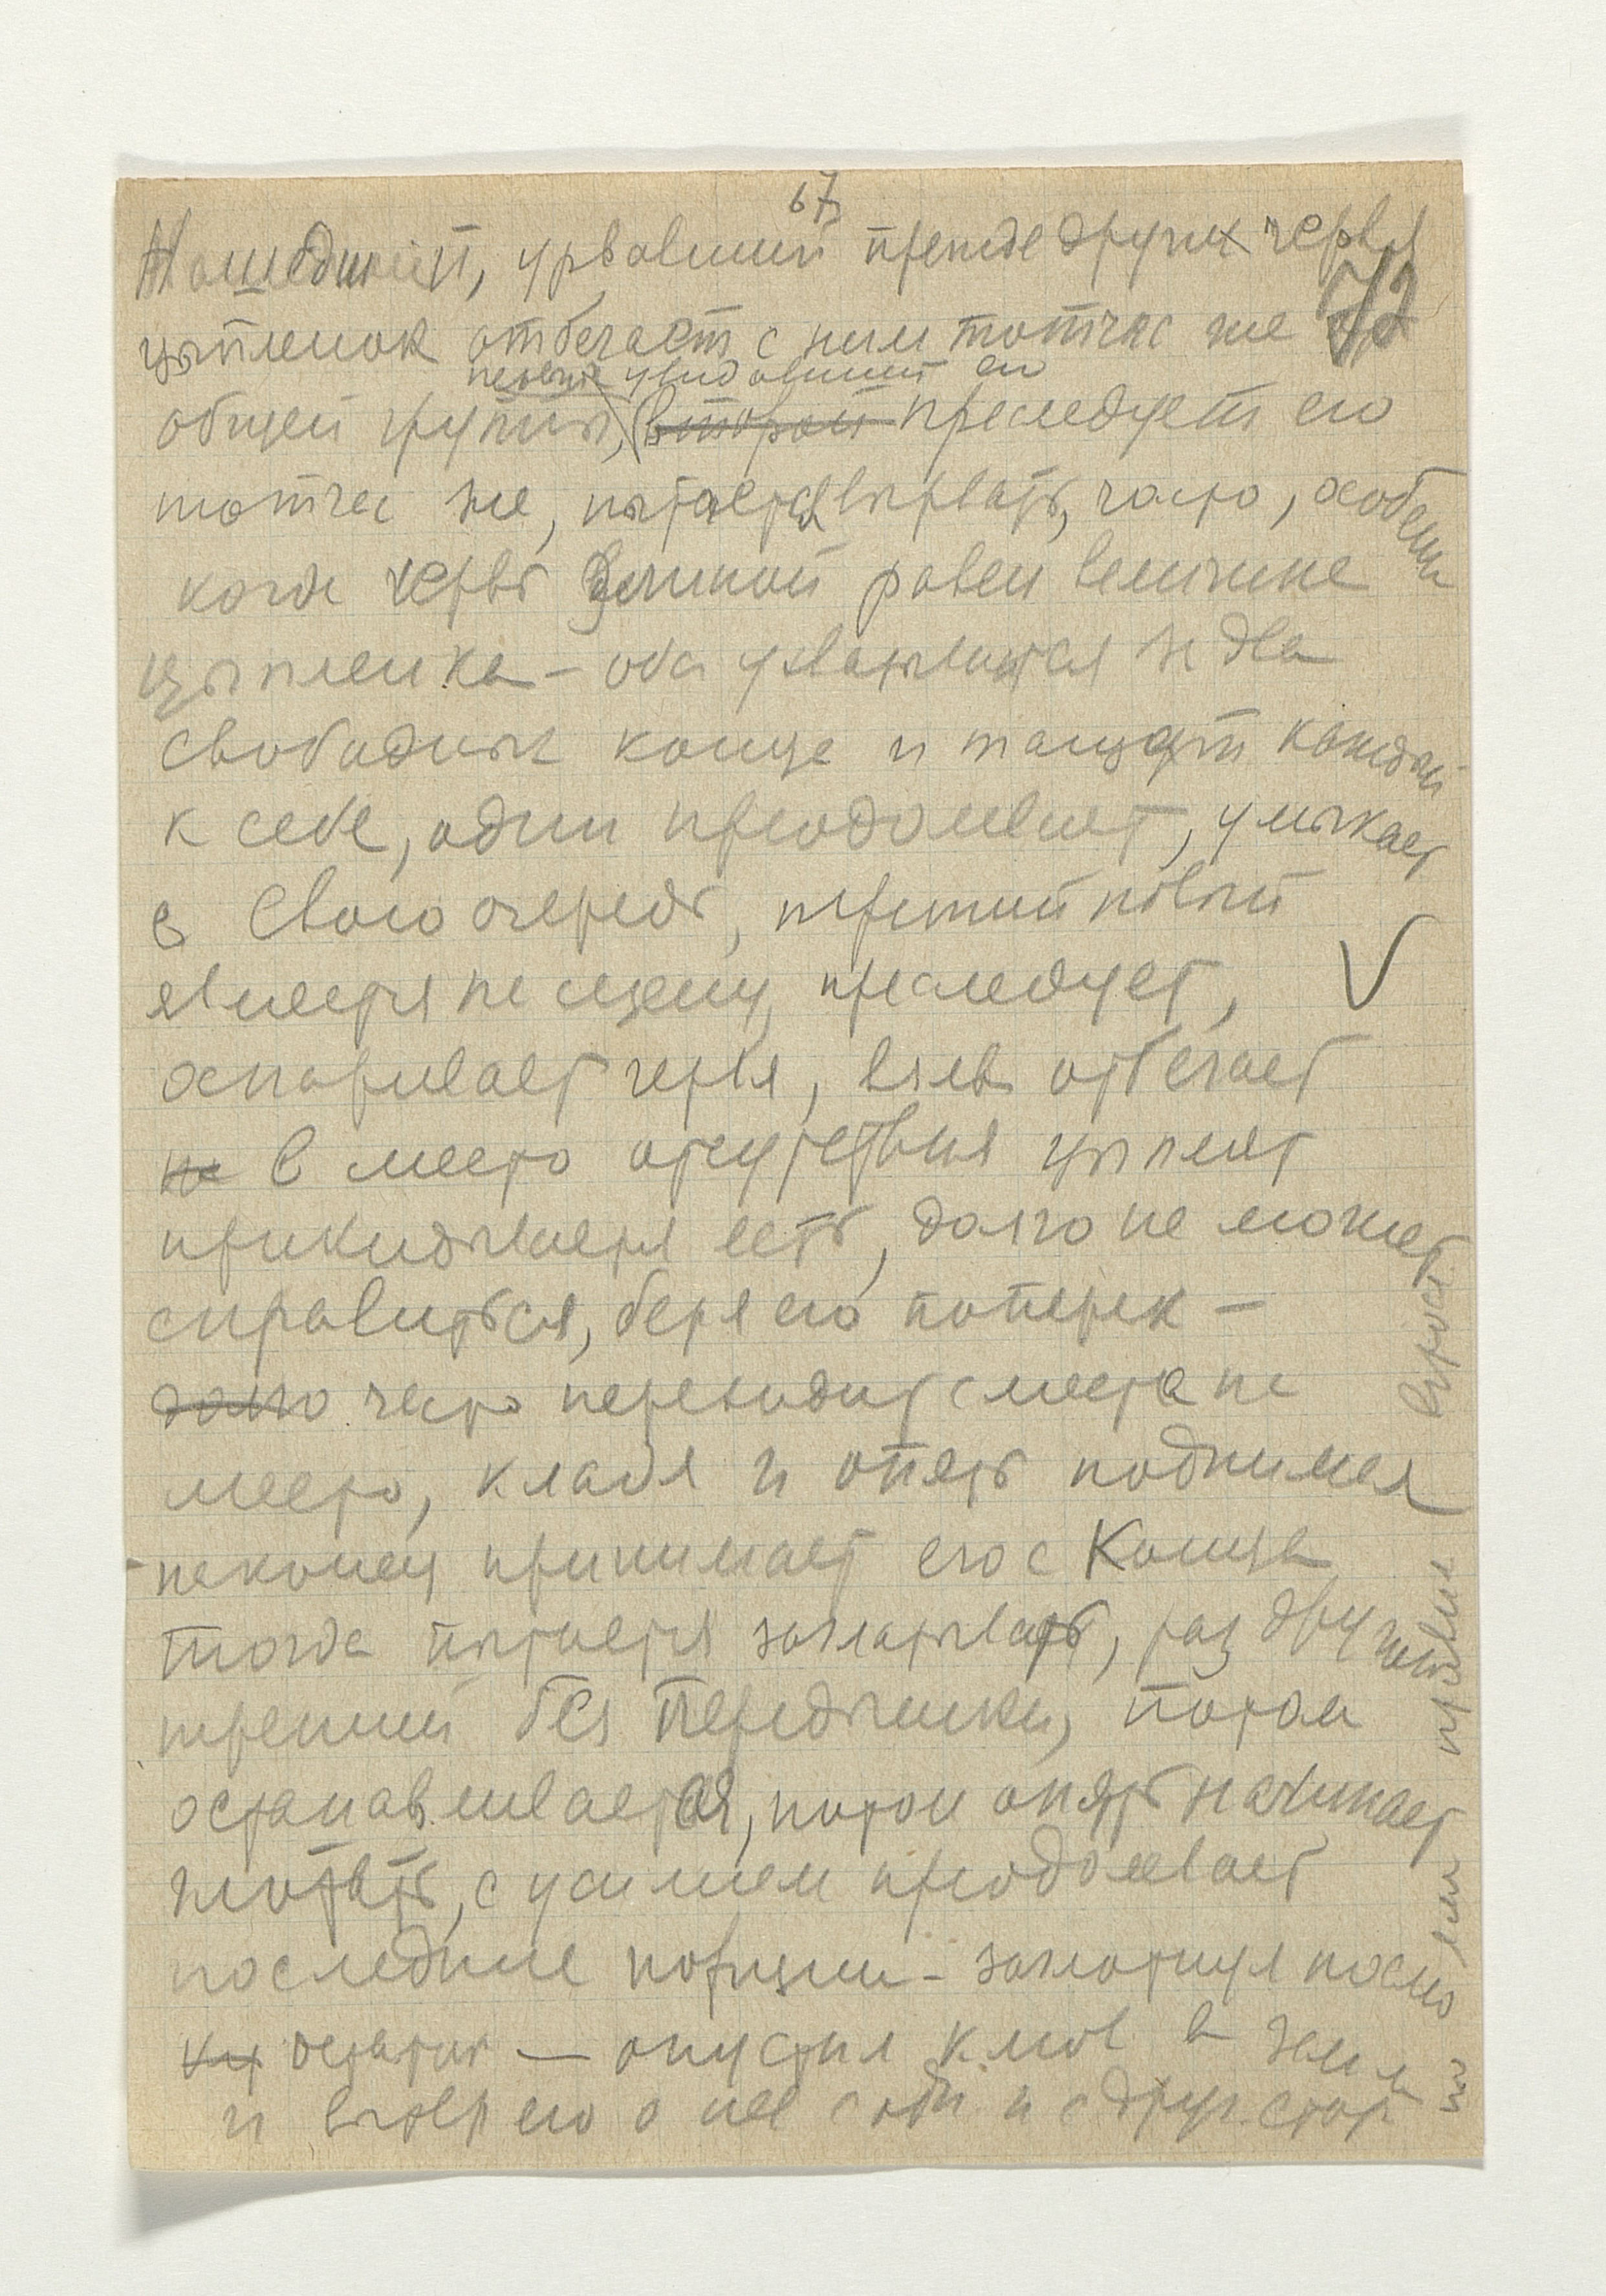 67
Нашедший, урвавший прежде других червя
72
цыпленок отбегает с ним тотчас же от
первый увидавший его
общей группы, второй преследует его
тотчас же, пытается вырвать, часто, особенн
когда червь длиной равен величине
цыпленка – оба ухватываются за два
свободных конца и тащат каждый
к себе, один преодолевает, умыкает
в свою очередь, третий новый
является на сцену, преследует,
оспаривает червя, взяв отбегает
на в место отсутствия цыплят
прикидывается есть, долго не может
справиться, беря его поперек –
долго часто переходит с места на
место, кладя и опять поднимая
наконец принимает его с конца
тогда пытается заглатывать, раз другой
третий без передышки, потом
останавливается, потом опять начинает
глотать, с усилием преодолевает
последние порции – заглотнул после
остаток – опустил клюв в земл
и вытер его о нее с одн. и с друг. стор